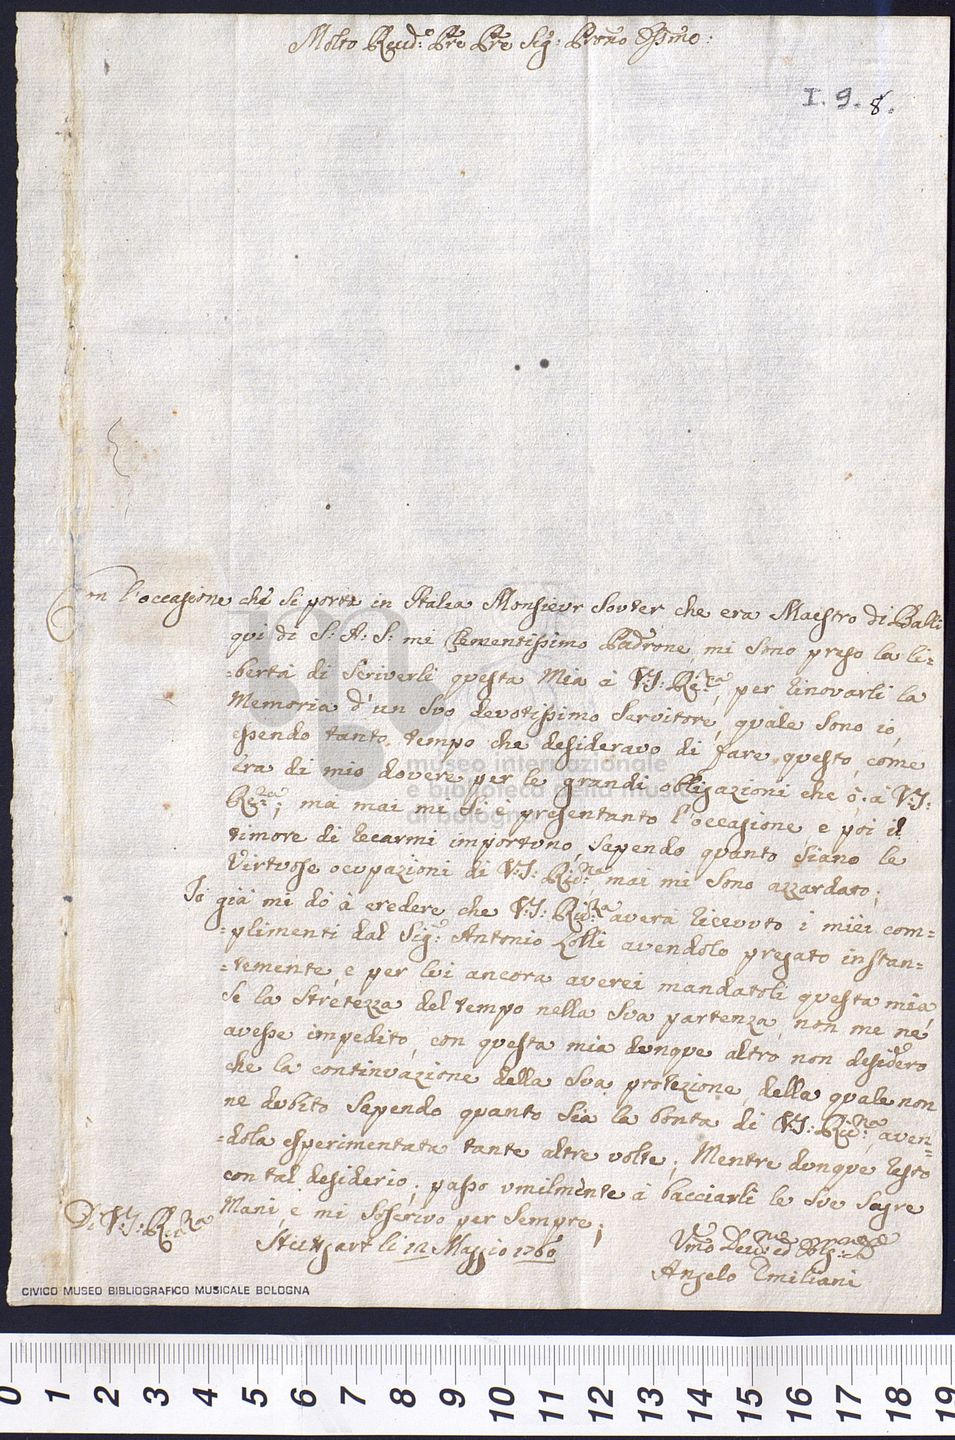 Molto Reud:o Pre Pre Sig: Prone Ossmo:
I. 9. 8.
Con l'occasione che si porta in Italia Monsieur Souter che era Maestro di Balli
qui di S: A: S: mé Clementissimo Padrone, mi sono preso la li=
=berta di Scriverli questa Mia à V:S: Re:za, per rinovarli la
Memoria d'un suo devotissimo servitore, quale sono io,
essendo tanto tempo che desideravo di fare questo, come
era di mio dovere per le grandi obbligazioni che ò à V:S:
Re:za; ma mai mi si è presentanto l'occasione e poi il
timore di recarmi importuno, sapendo quanto siano le
Virtuose ocupazioni di V:S: Rid:za, mai mi sono azzardato;
Io già me dò à credere che V:S: Rid:za averà ricevuto i miei com=
=plimenti dal Sig: Antonio Lolli avendolo pregato instan=
=temente, e per lui ancora averei mandatoli questa mia
se la stretezza del tempo nella sua partenza, non me ne
avesse impedito, con questa mia dunque altro non desidero
che la continuazione della sua protezione, della quale non
ne dubito sapendo quanto sia la bonta di V:S: Rid:za, aven=
=dola esperimentata tante altre volte; Mentre dunque resto
con tal desiderio, passo umilmente à bacciarli le sue sagre
Mani, e mi soscrivo per sempre;
Di V:S: R:za
Stutgart li 12 Maggio 1760
Umo Deuo: ed Obbg:
Angelo Emiliani
museo internazionale
e biblioteca della musica
di bologna
CIVICO MUSEO BIBLIOGRAFICO MUSICALE BOLOGNA
0 1 2 3 4 5 6 7 8 9 10 11 12 13 14 15 16 17 18 19